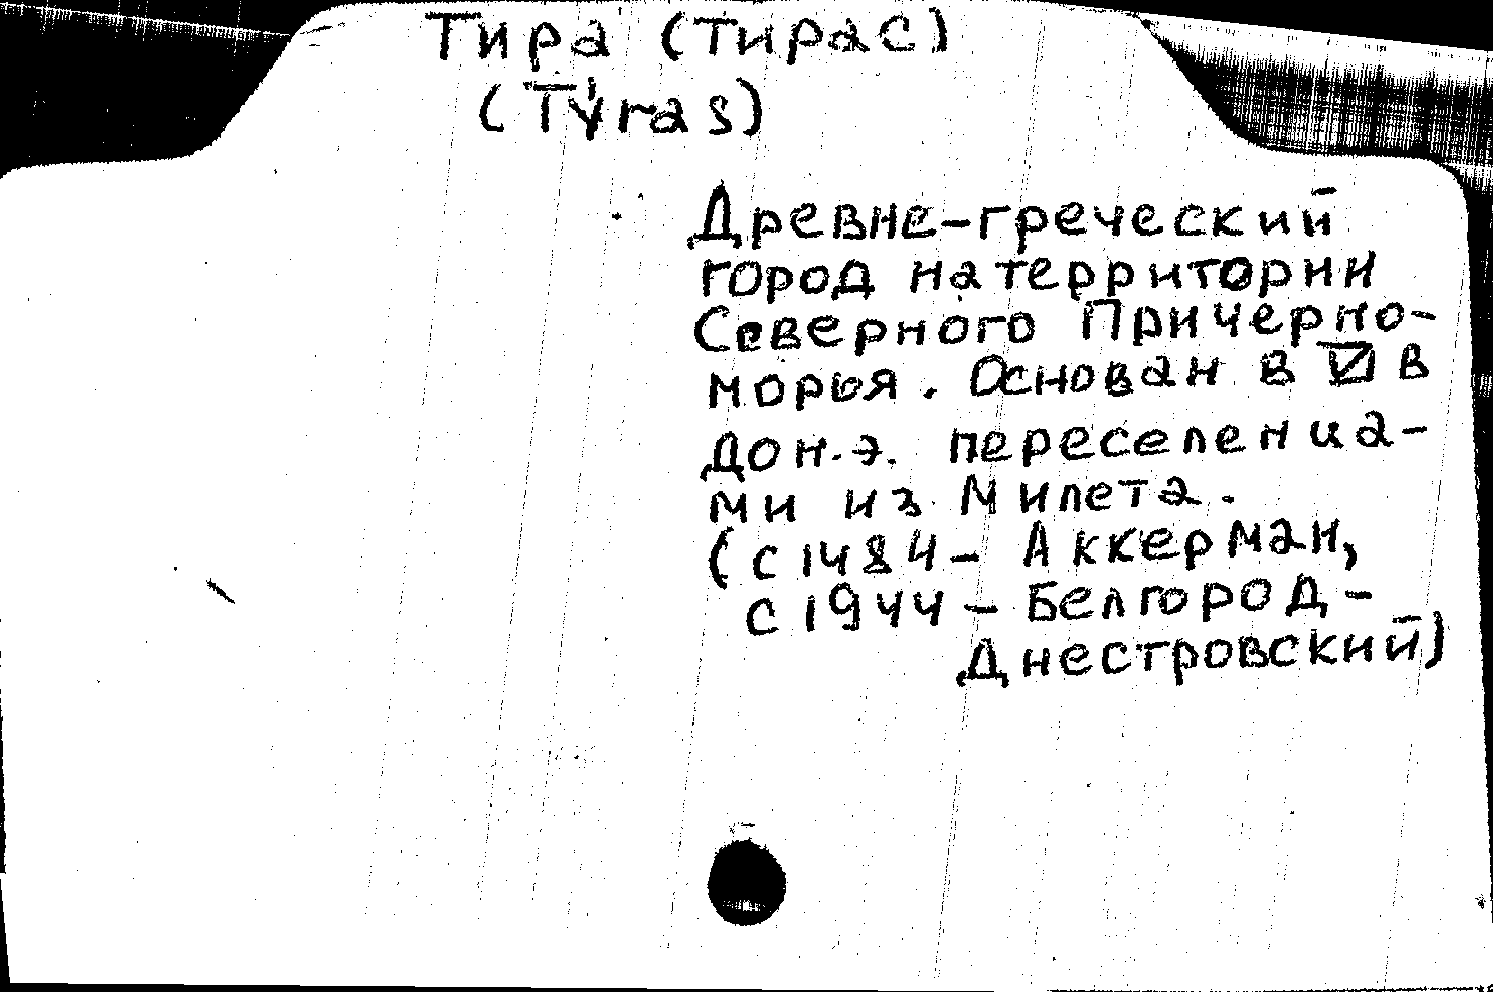 Тира (Тирас)
(Tyras)
Древне-греческий
город на территории
Северного Причерно-
морья. Основан в VI в
до н.э. переселенца-
ми из Милета.
(с 1484 - Аккерман,
с 1944 - Белгород-
Днестровский)